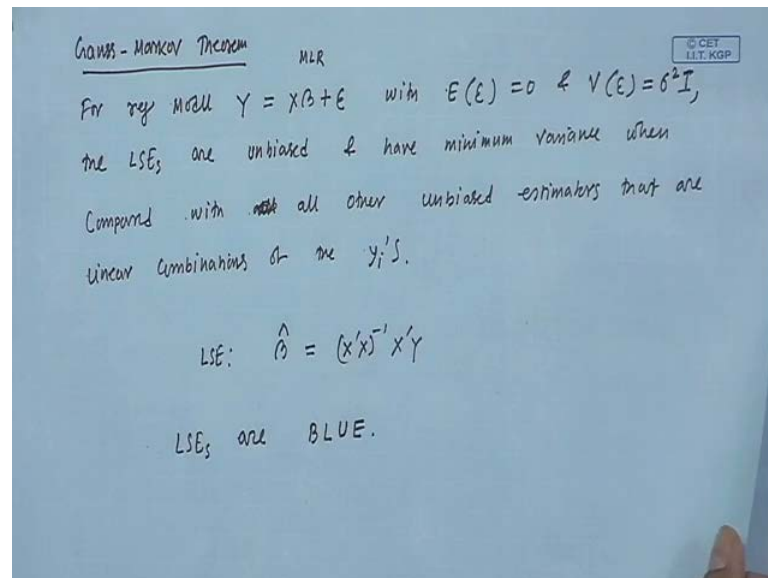 Gauss-Markov Theorem
© CET
I.I.T. KGP
MLR
For reg Model Y = Xβ+ε with E(ε) = 0 & V(ε) = σ²I,
the LSEs are unbiased & have minimum variance when
Compared with all other unbiased estimators that are
linear combinations of the yᵢ's.
LSE: β̂ = (X'X)⁻¹X'Y
LSEs are BLUE.